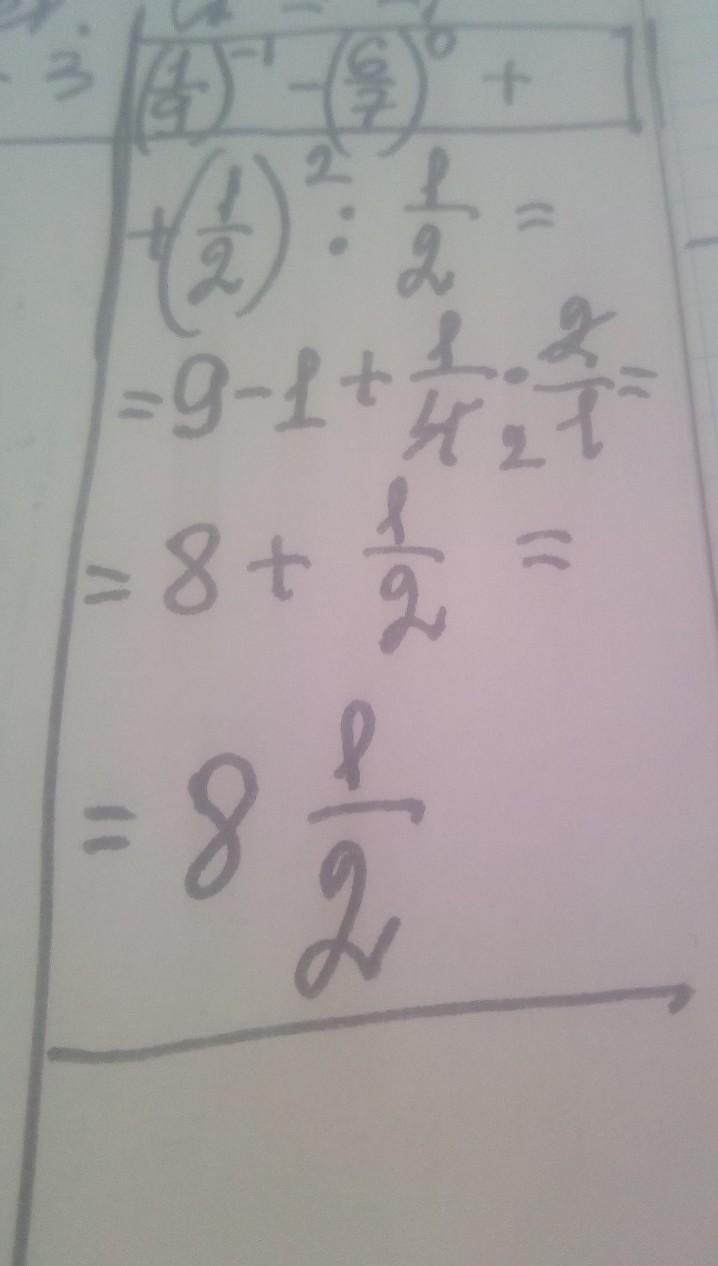 3
(1/9)^-1 - (6/7)^0 +
+(1/2)^2 : 1/2 =
= 9 - 1 + 1/4 2 · 2/1 =
= 8 + 1/2 =
= 8 1/2